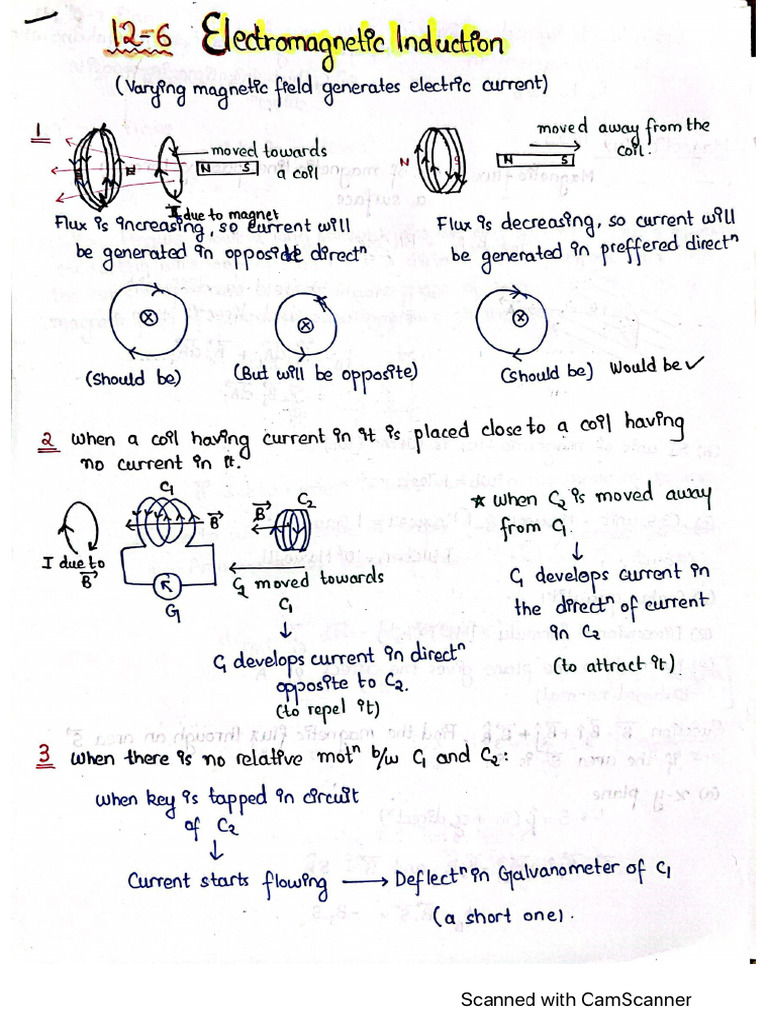 12-6 Electromagnetic Induction
(Varying magnetic field generates electric current)
1
moved towards
a coil
N S
I due to magnet
Flux is increasing, so current will
be generated in opposite directⁿ
(Should be)
(But will be opposite)
moved away from the
coil.
N
N S
Flux is decreasing, so current will
be generated in preffered directⁿ
(should be) Would be ✓
2 when a coil having current in it is placed close to a coil having
no current in it.
I due to
B⃗
C₁
B⃗
G
B⃗
C₂
C₂ moved towards
C₁
↓
C₁ develops current in directⁿ
opposite to C₂.
(to repel it)
★ when C₂ is moved away
from C₁
↓
C₁ develops current in
the directⁿ of current
in C₂
(to attract it)
3 when there is no relative motⁿ b/w C₁ and C₂:
when key is tapped in circuit
of C₂
↓
Current starts flowing → Deflectⁿ in Galvanometer of C₁
(a short one).
Scanned with CamScanner